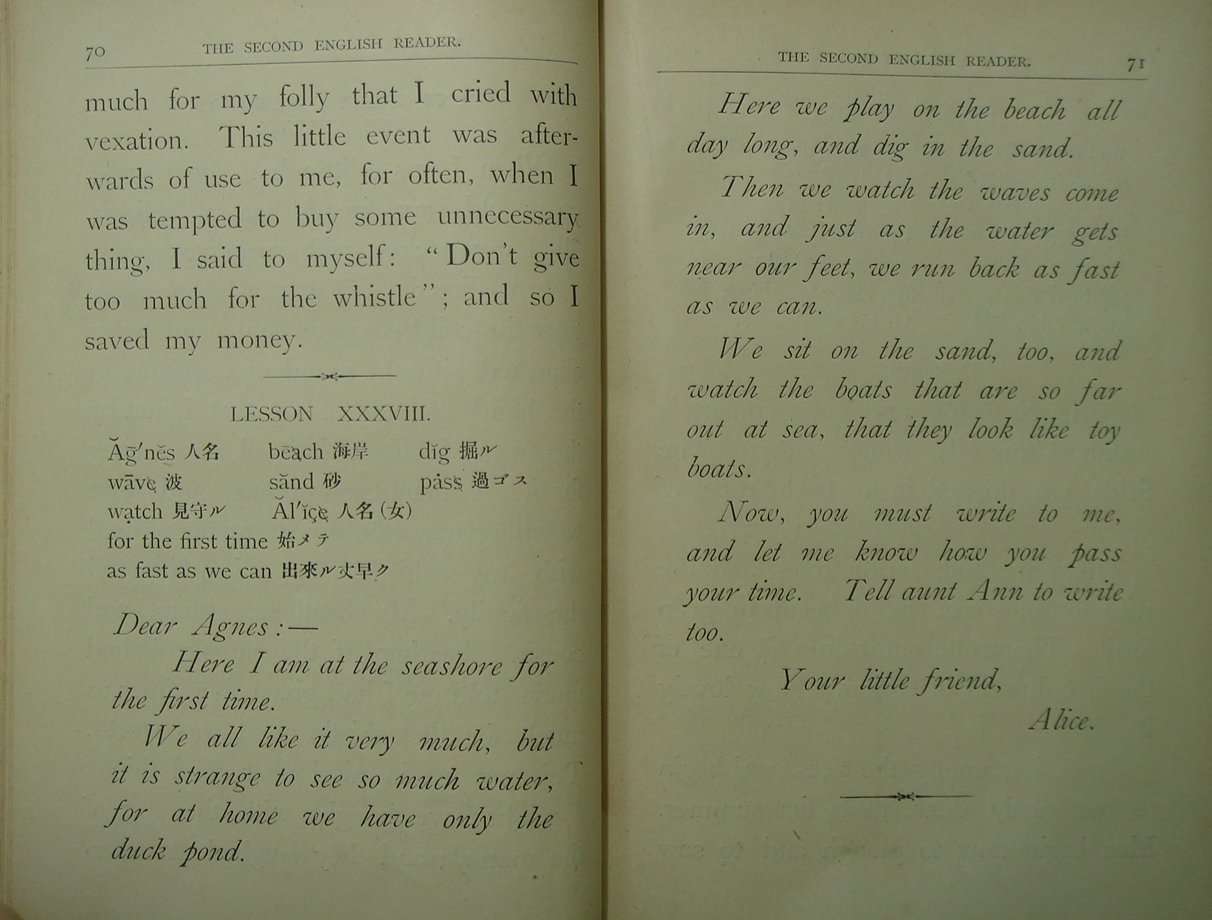 70
THE SECOND ENGLISH READER.
much for my folly that I cried with
vexation. This little event was after-
wards of use to me, for often, when I
was tempted to buy some unnecessary
thing, I said to myself: “Don't give
too much for the whistle”; and so I
saved my money.
LESSON XXXVIII.
Ăḡ′nĕs 人名 bēạch 海岸 dĭg 掘ル
wāvę 波 sănd 砂 pȧss 過ゴス
wạtch 見守ル Ăl′ĭçę 人名(女)
for the first time 始メテ
as fast as we can 出來ル丈早ク
Dear Agnes :—
Here I am at the seashore for
the first time.
We all like it very much, but
it is strange to see so much water,
for at home we have only the
duck pond.
THE SECOND ENGLISH READER.
71
Here we play on the beach all
day long, and dig in the sand.
Then we watch the waves come
in, and just as the water gets
near our feet, we run back as fast
as we can.
We sit on the sand, too, and
watch the boats that are so far
out at sea, that they look like toy
boats.
Now, you must write to me,
and let me know how you pass
your time. Tell aunt Ann to write
too.
Your little friend,
Alice.